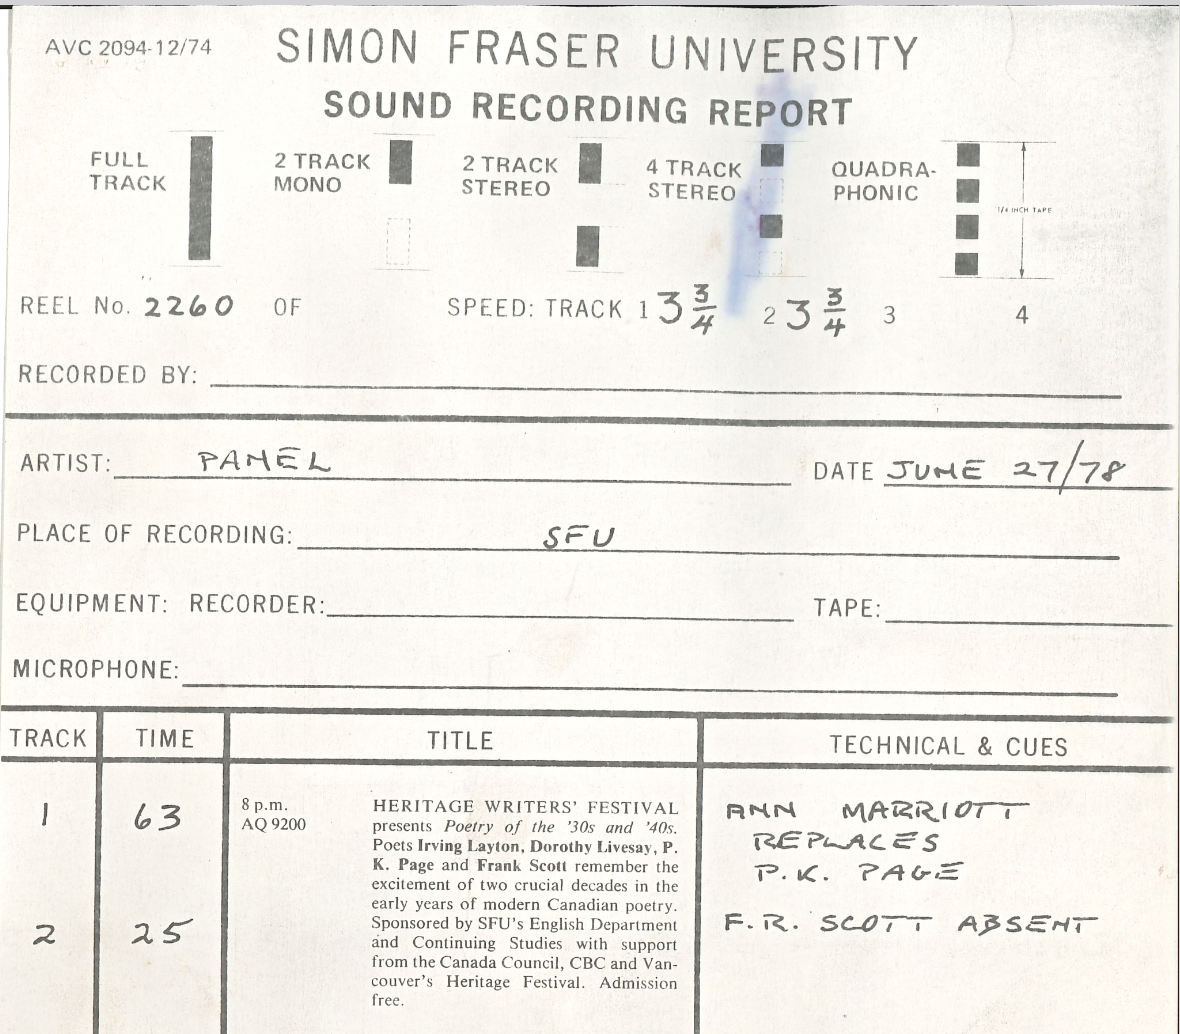 AVC 2094-12/74
SIMON FRASER UNIVERSITY
SOUND RECORDING REPORT
FULL TRACK
2 TRACK MONO
2 TRACK STEREO
4 TRACK STEREO
QUADRA-PHONIC
1/4 INCH TAPE
REEL No. 2260 OF SPEED: TRACK 1 3 3/4 2 3 3/4 3 4
RECORDED BY:
ARTIST: PANEL DATE JUNE 27/78
PLACE OF RECORDING: SFU
EQUIPMENT: RECORDER: TAPE:
MICROPHONE:
TRACK TIME TITLE TECHNICAL & CUES
1 63
8 p.m.
AQ 9200
HERITAGE WRITERS' FESTIVAL
presents Poetry of the '30s and '40s.
Poets Irving Layton, Dorothy Livesay, P.
K. Page and Frank Scott remember the
excitement of two crucial decades in the
early years of modern Canadian poetry.
Sponsored by SFU's English Department
and Continuing Studies with support
from the Canada Council, CBC and Van-
couver's Heritage Festival. Admission
free.
ANN MARRIOTT
REPLACES
P.K. PAGE
2 25
F.R. SCOTT ABSENT